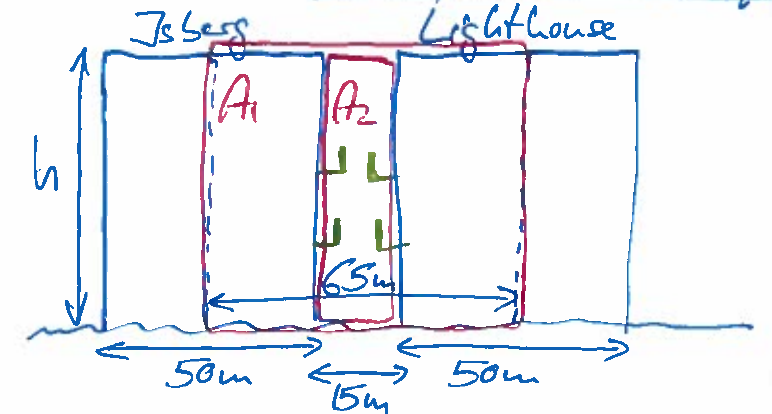 Isberg Lighthouse
A1 A2
h
65m
50m 15m 50m